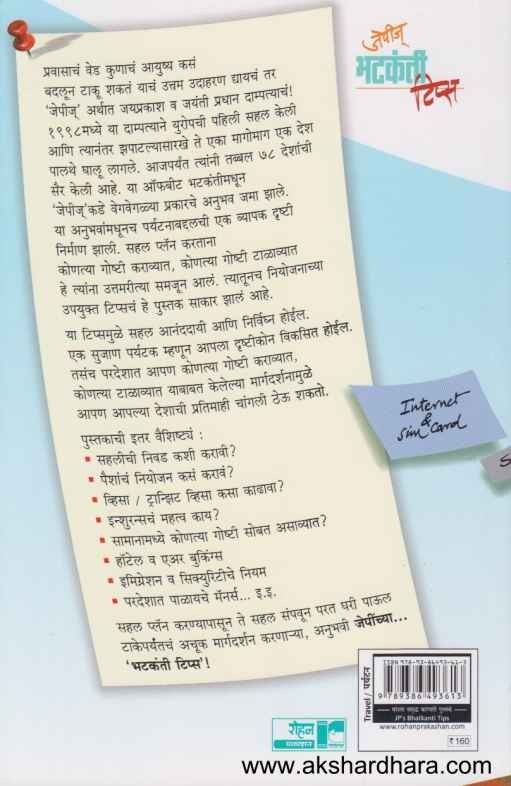 जेपीज्
भटकंती
टिप्स
प्रवासाचं वेड कुणाचं आयुष्य कसं
बदलून टाकू शकतं याचं उत्तम उदाहरण द्यायचं तर
'जेपीज्' अर्थात जयप्रकाश व जयंती प्रधान दाम्पत्याचं!
१९९८मध्ये या दाम्पत्याने युरोपची पहिली सहल केली
आणि त्यानंतर झपाटल्यासारखे ते एका मागोमाग एक देश
पालथे घालू लागले. आजपर्यंत त्यांनी तब्बल ७८ देशांची
सैर केली आहे. या ऑफबीट भटकंतीमधून
'जेपीज्'कडे वेगवेगळ्या प्रकारचे अनुभव जमा झाले.
या अनुभवांमधूनच पर्यटनाबद्दलची एक व्यापक दृष्टी
निर्माण झाली. सहल प्लॅन करताना
कोणत्या गोष्टी कराव्यात, कोणत्या गोष्टी टाळाव्यात
हे त्यांना उत्तमरीत्या समजून आलं. त्यातूनच नियोजनाच्या
उपयुक्त टिप्सचं हे पुस्तक साकार झालं आहे.
या टिप्समुळे सहल आनंददायी आणि निर्विघ्न होईल.
एक सुजाण पर्यटक म्हणून आपला दृष्टीकोन विकसित होईल.
तसंच परदेशात आपण कोणत्या गोष्टी कराव्यात,
कोणत्या टाळाव्यात याबाबत केलेल्या मार्गदर्शनामुळे
आपण आपल्या देशाची प्रतिमाही चांगली ठेऊ शकतो.
पुस्तकाची इतर वैशिष्ट्यं :
▪ सहलीची निवड कशी करावी?
▪ पैशांचं नियोजन कसं करावं?
▪ व्हिसा / ट्रान्झिट व्हिसा कसा काढावा?
▪ इन्शुरन्सचं महत्व काय?
▪ सामानामध्ये कोणत्या गोष्टी सोबत असाव्यात?
▪ हॉटेल व एअर बुकिंग्स
▪ इमिग्रेशन व सिक्युरिटीचे नियम
▪ परदेशात पाळायचे मॅनर्स... इ.इ.
सहल प्लॅन करण्यापासून ते सहल संपवून परत घरी पाऊल
टाकेपर्यंतचं अचूक मार्गदर्शन करणाऱ्या, अनुभवी जेपींच्या...
'भटकंती टिप्स'!
Internet
&
sim card
S
Travel / पर्यटन
ISBN 978-93-86493-61-3
9 789386 493613
JP's Bhatkanti Tips
www.rohanprakashan.com
₹ 160
रोहन
प्रकाशन
www.akshardhara.com